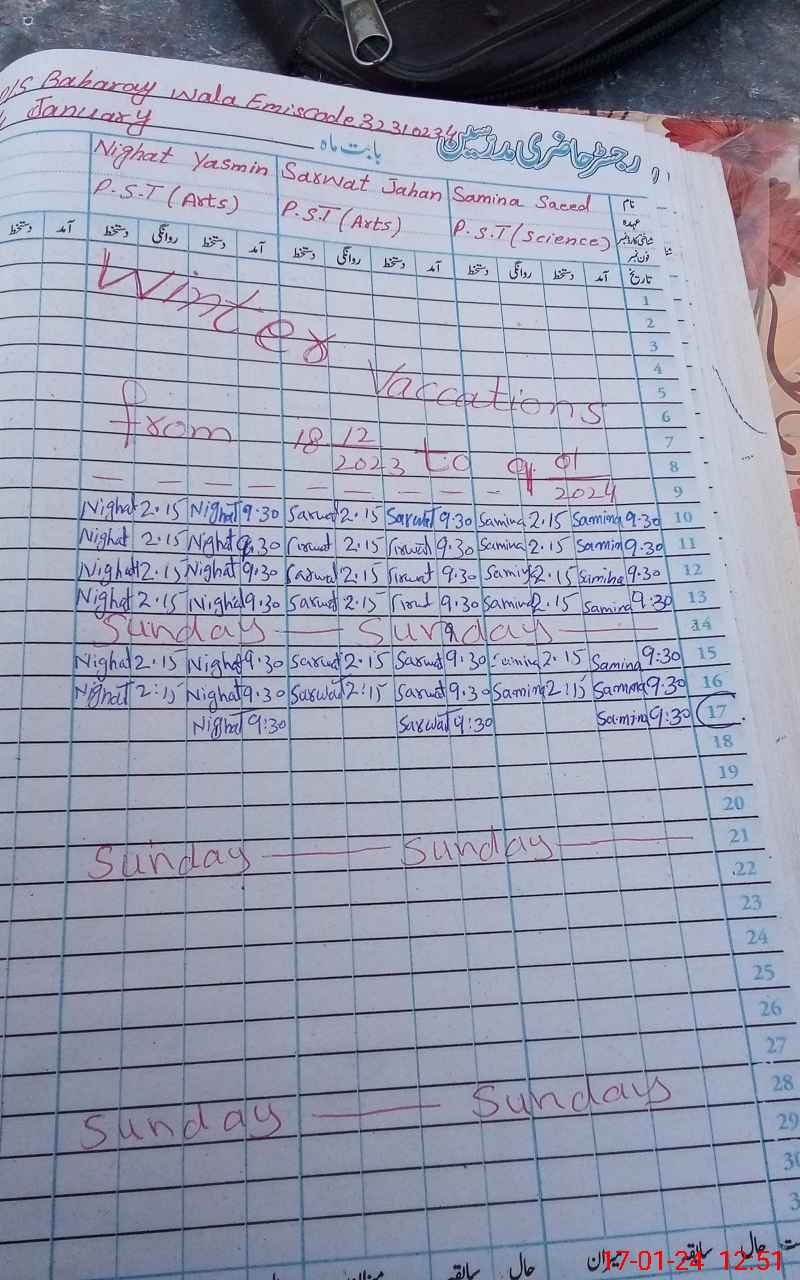 Baharay Wala Emiscode 32310234
January
رجسٹر حاضری مدرسین
بابت ماہ
Nighat Yasmin Sarwat Jahan Samina Saeed نام
P.S.T (Arts) P.S.T (Arts) P.S.T (Science) عہدہ
شناختی کارڈ نمبر
فون نمبر
دستخط آمد دستخط روانگی دستخط آمد دستخط روانگی دستخط آمد دستخط روانگی دستخط آمد تاریخ
1
Winter 2
3
4
Vaccations 5
6
from 18 12 to 01 7
2023 2024 8
9
Nighat 2.15 Nighat 9.30 Sarwat 2.15 Sarwat 9.30 Samina 2.15 Samina 9.30 10
Nighat 2.15 Nighat 9.30 Sarwat 2.15 Sarwat 9.30 Samina 2.15 Samina 9.30 11
Nighat 2.15 Nighat 9.30 Sarwat 2.15 Sarwat 9.30 Samina 2.15 Samina 9.30 12
Nighat 2.15 Nighat 9.30 Sarwat 2.15 Sarwat 9.30 Samina 2.15 Samina 9.30 13
Sunday — Sunday — 14
Nighat 2.15 Nighat 9.30 Sarwat 2.15 Sarwat 9.30 Samina 2.15 Samina 9:30 15
Nighat 2:15 Nighat 9.30 Sarwat 2:15 Sarwat 9.30 Samina 2:15 Samina 9.30 16
Nighat 9:30 Sarwat 9:30 Samina 9:30 17
18
19
20
Sunday — Sunday — 21
22
23
24
25
26
27
Sunday — Sunday 28
29
30
3
سابقہ حال میزان سابقہ حال
17-01-24 12:51